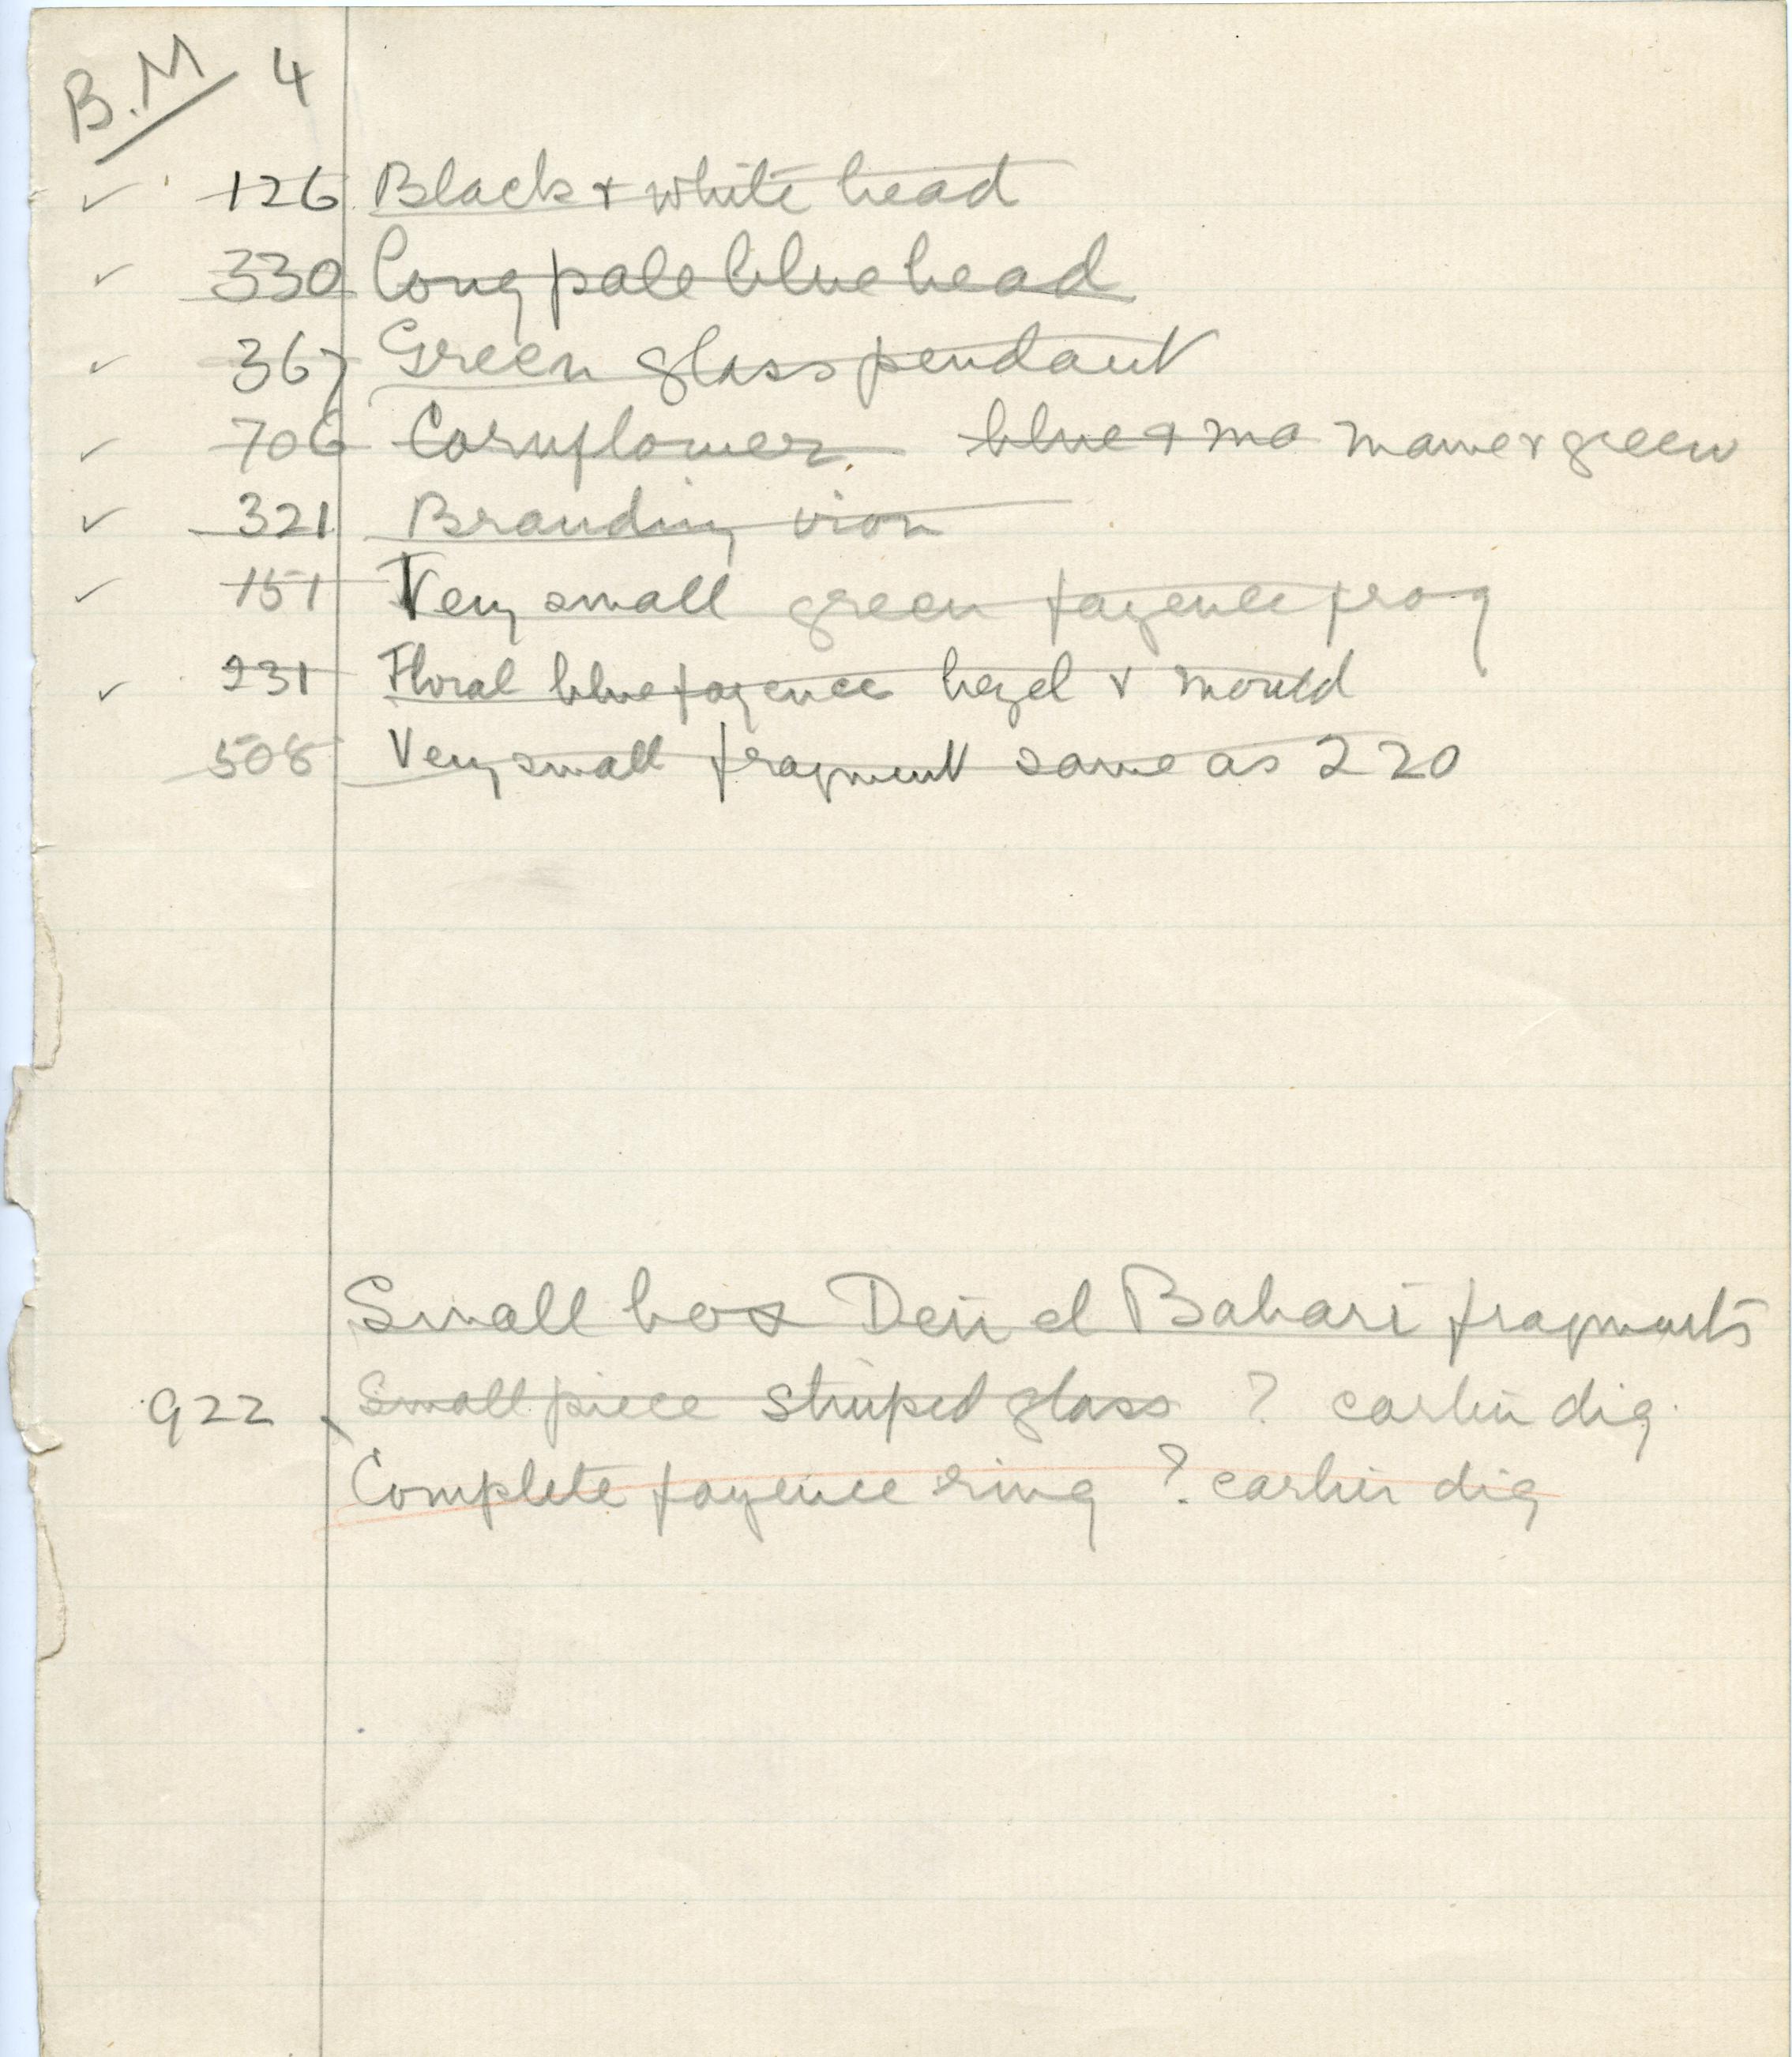 B.M 4
✓ 126 Black & white bead
✓ 330 Long pale blue bead
✓ 367 Green glass pendant
✓ 706 Cornflower blue & ma mauve & green
✓ 321 Branding iron
✓ 151 Very small green fayence frog
✓ 231 Floral blue fayence bezel & mould
508 Very small fragment same as 220
Small box Deir el Bahari fragments
922 Small piece striped glass ? earlier dig.
Complete fayence ring ? earlier dig